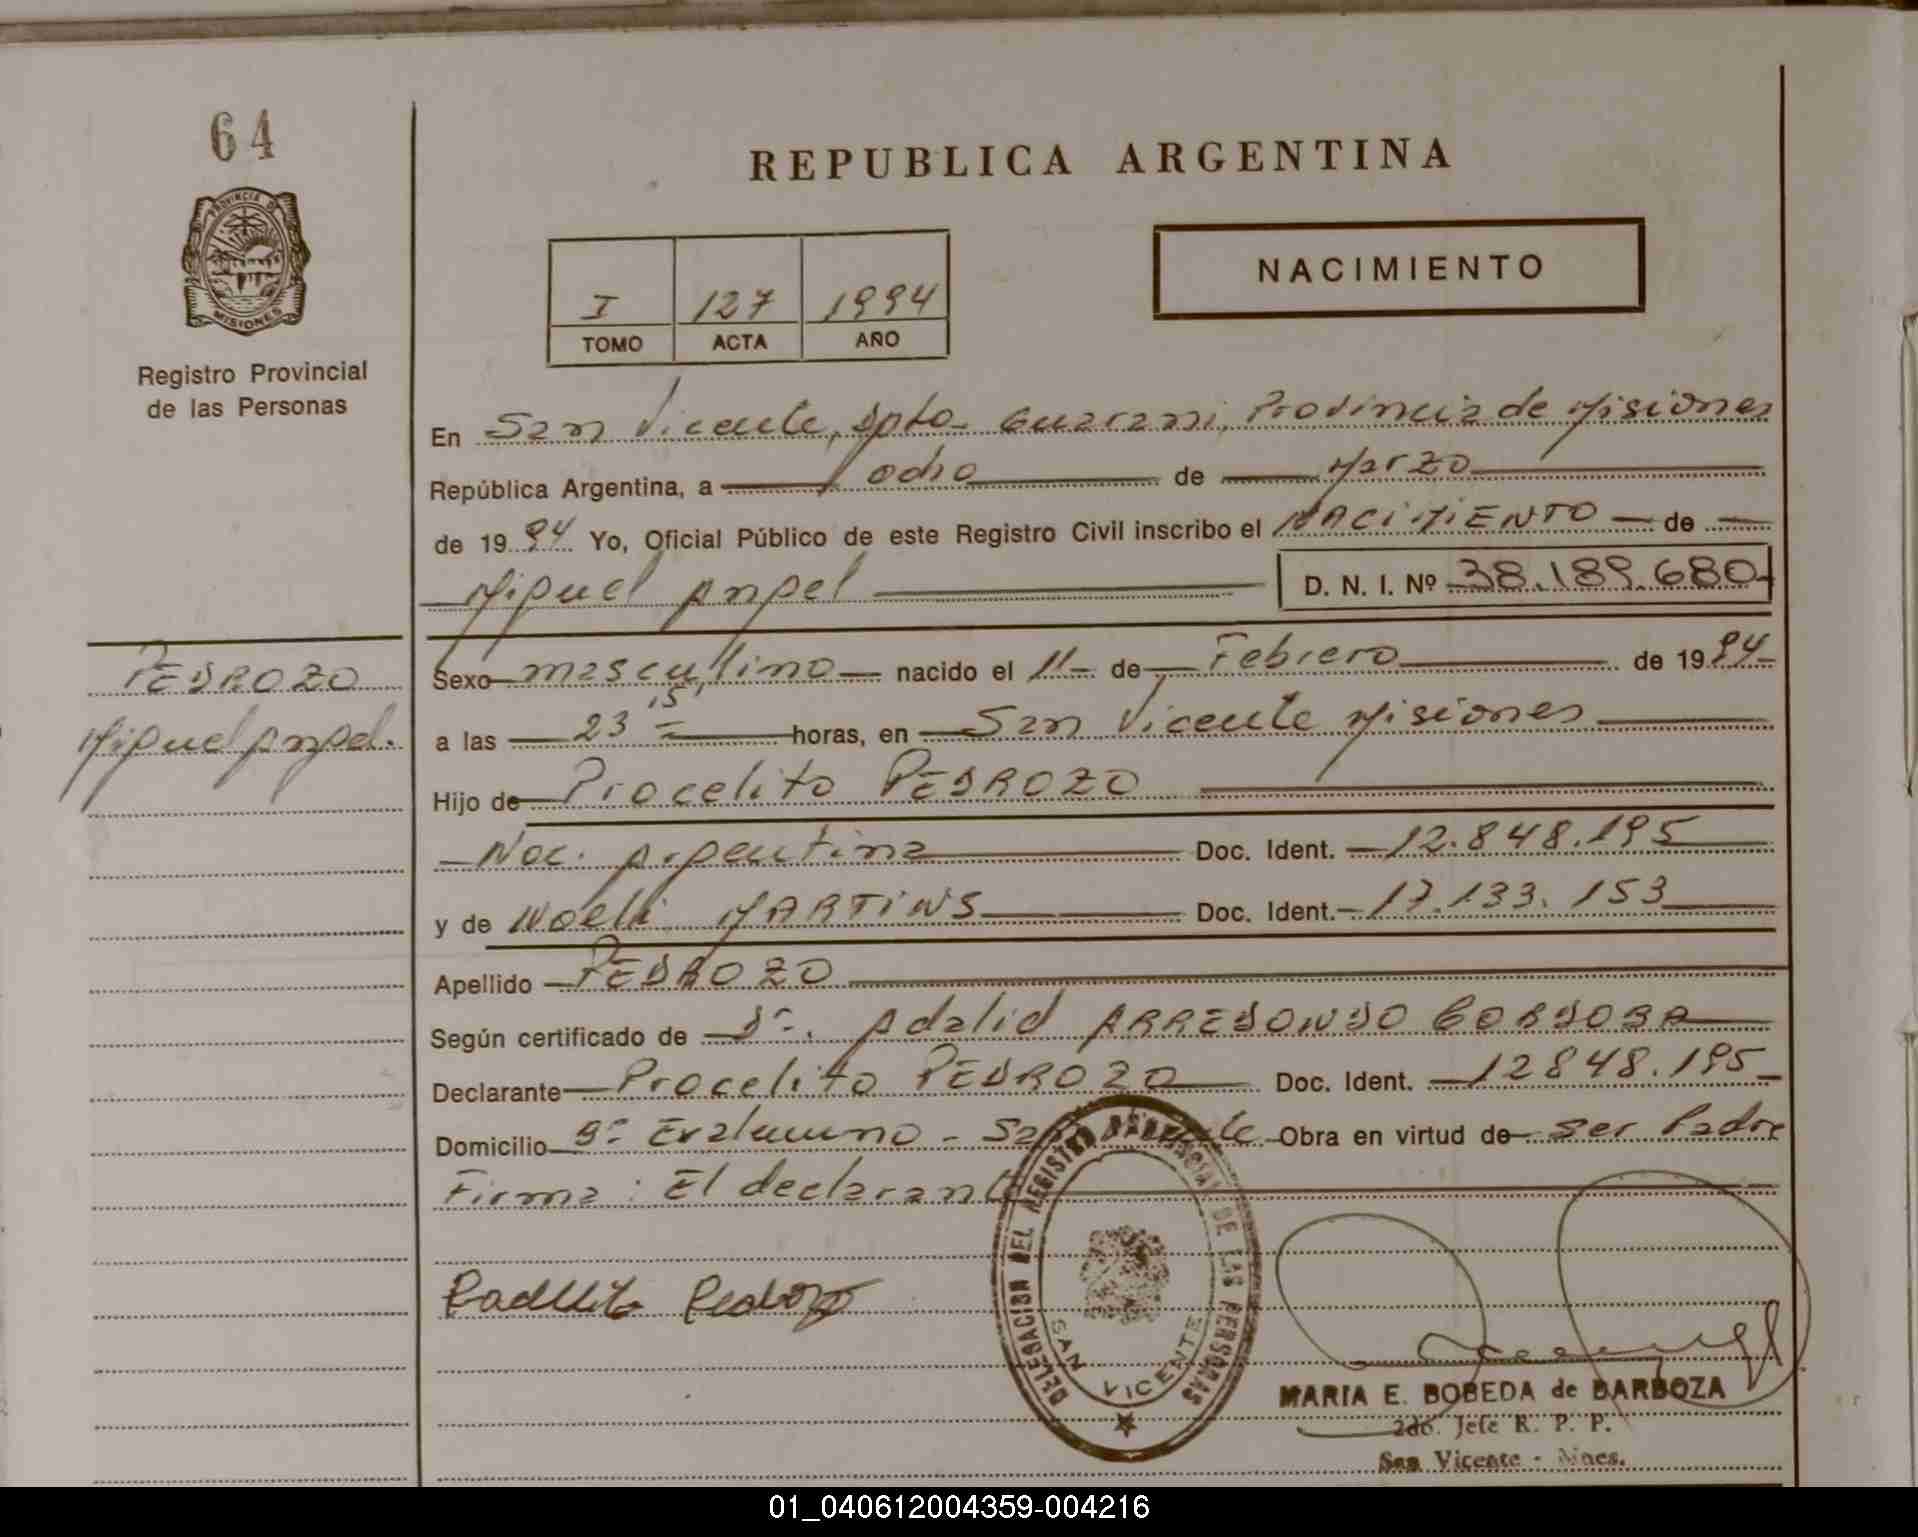 64
PROVINCIA DE
MISIONES
Registro Provincial
de las Personas
REPUBLICA ARGENTINA
I 127 1994
TOMO ACTA AÑO
NACIMIENTO
En San Vicente, Dpto. Guarani, Provincia de Misiones
República Argentina, a ocho de Marzo
de 1994 Yo, Oficial Público de este Registro Civil inscribo el NACIMIENTO de
Miguel Angel D. N. I. Nº 38.189.680
PEDROZO
Miguel Angel.
Sexo masculino nacido el 11 de Febrero de 1994
a las 23 15 horas, en San Vicente Misiones
Hijo de Procelito PEDROZO
Nac. Argentina Doc. Ident. 12.848.195
y de Noelli MARTINS Doc. Ident. 17.133.153
Apellido PEDROZO
Según certificado de Dr. Adalid ARREDONDO CORDOBA
Declarante Procelito PEDROZO Doc. Ident. 12848.195
Domicilio San Vicente Obra en virtud de ser Padre
Firma: El declarante
Pedrozo
DELEGACION DEL REGISTRO PROVINCIAL DE LAS PERSONAS
SAN VICENTE
MARIA E. BOBEDA de BARBOZA
2do. Jefe R. P. P.
San Vicente - Mnes.
01_040612004359-004216